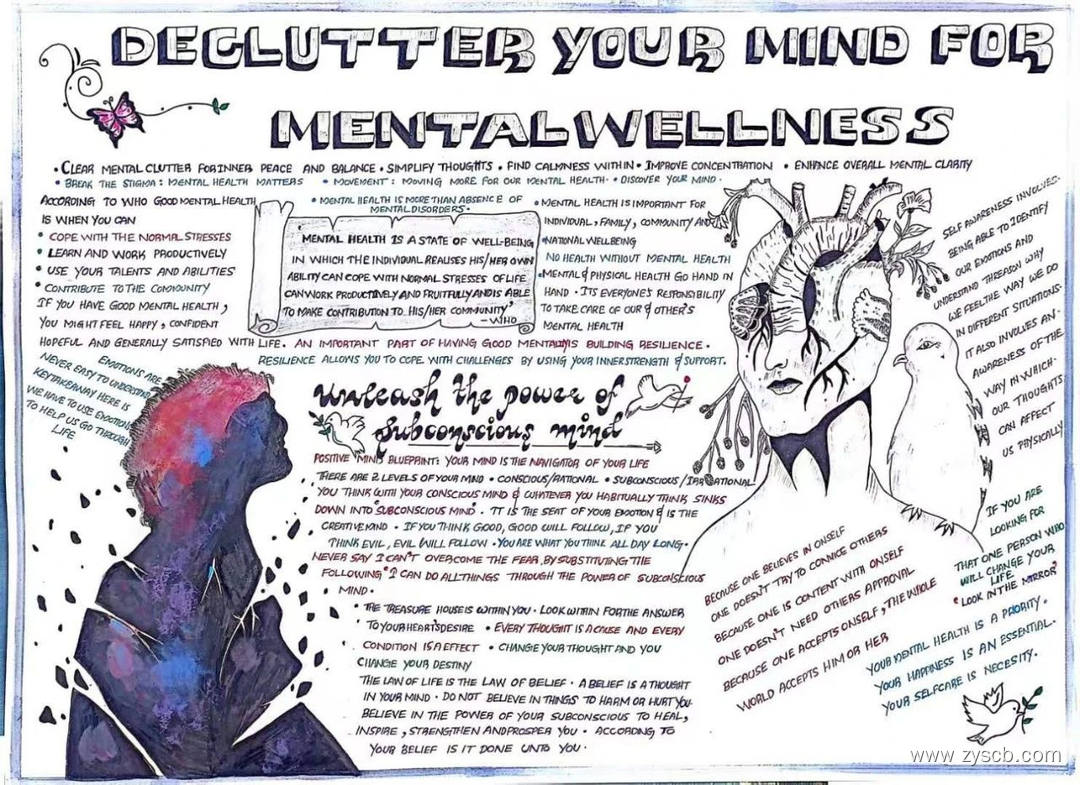 DECLUTTER YOUR MIND FOR
MENTALWELLNESS
• CLEAR MENTAL CLUTTER FOR INNER PEACE AND BALANCE • SIMPLIFY THOUGHTS • FIND CALMNESS WITHIN • IMPROVE CONCENTRATION • ENHANCE OVERALL MENTAL CLARITY
• BREAK THE STIGMA : MENTAL HEALTH MATTERS • MOVEMENT : MOVING MORE FOR OUR MENTAL HEALTH • DISCOVER YOUR MIND •
ACCORDING TO WHO GOOD MENTAL HEALTH
IS WHEN YOU CAN
• COPE WITH THE NORMAL STRESSES
• LEARN AND WORK PRODUCTIVELY
• USE YOUR TALENTS AND ABILITIES
• CONTRIBUTE TO THE COMMUNITY
IF YOU HAVE GOOD MENTAL HEALTH ,
YOU MIGHT FEEL HAPPY , CONFIDENT
HOPEFUL AND GENERALLY SATISFIED WITH LIFE. AN IMPORTANT PART OF HAVING GOOD MENTALITY IS BUILDING RESILIENCE •
RESILIENCE ALLOWS YOU TO COPE WITH CHALLENGES BY USING YOUR INNER STRENGTH & SUPPORT.
• MENTAL HEALTH IS MORE THAN ABSENCE OF
MENTAL DISORDERS •
"MENTAL HEALTH IS A STATE OF WELL-BEING
IN WHICH THE INDIVIDUAL REALISES HIS/HER OWN
ABILITY CAN COPE WITH NORMAL STRESSES OF LIFE
CAN WORK PRODUCTIVELY AND FRUITFULLY AND IS ABLE
TO MAKE CONTRIBUTION TO HIS/HER COMMUNITY"
-WHO
• MENTAL HEALTH IS IMPORTANT FOR
INDIVIDUAL , FAMILY , COMMUNITY AND
NATIONAL WELLBEING
NO HEALTH WITHOUT MENTAL HEALTH
• MENTAL & PHYSICAL HEALTH GO HAND IN
HAND • ITS EVERYONE'S RESPONSIBILITY
TO TAKE CARE OF OUR & OTHER'S
MENTAL HEALTH
SELF AWARENESS INVOLVES
BEING ABLE TO IDENTIFY
OUR EMOTIONS AND
UNDERSTAND THE REASON WHY
WE FEEL THE WAY WE DO
IN DIFFERENT SITUATIONS.
IT ALSO INVOLVES AN
AWARENESS OF THE
WAY IN WHICH
OUR THOUGHTS
CAN AFFECT
US PHYSICALLY
EMOTIONS ARE
NEVER EASY TO UNDERSTAND
KEYTAKEAWAY HERE IS
WE HAVE TO USE EMOTIONS
TO HELP US GO THROUGH
LIFE
Unleash the power of
Subconscious mind
POSITIVE MIND BLUEPRINT: YOUR MIND IS THE NAVIGATOR OF YOUR LIFE
THERE ARE 2 LEVELS OF YOUR MIND • CONSCIOUS/RATIONAL • SUBCONSCIOUS / IRRATIONAL
YOU THINK WITH YOUR CONSCIOUS MIND & WHATEVER YOU HABITUALLY THINK SINKS
DOWN INTO SUBCONSCIOUS MIND • IT IS THE SEAT OF YOUR EMOTION & IS THE
CREATIVE MIND • IF YOU THINK GOOD, GOOD WILL FOLLOW, IF YOU
THINK EVIL, EVIL WILL FOLLOW • YOU ARE WHAT YOU THINK ALL DAY LONG •
NEVER SAY I CAN'T OVERCOME THE FEAR, BY SUBSTITUTING THE
FOLLOWING "I CAN DO ALL THINGS THROUGH THE POWER OF SUBCONSCIOUS
MIND •
• THE TREASURE HOUSE IS WITHIN YOU • LOOK WITHIN FOR THE ANSWER
TO YOUR HEARTS DESIRE • EVERY THOUGHT IS A CAUSE AND EVERY
CONDITION IS A EFFECT • CHANGE YOUR THOUGHT AND YOU
CHANGE YOUR DESTINY
THE LAW OF LIFE IS THE LAW OF BELIEF • A BELIEF IS A THOUGHT
IN YOUR MIND • DO NOT BELIEVE IN THINGS TO HARM OR HURT YOU •
BELIEVE IN THE POWER OF YOUR SUBCONSCIOUS TO HEAL,
INSPIRE , STRENGTHEN AND PROSPER YOU • ACCORDING TO
YOUR BELIEF IS IT DONE UNTO YOU •
BECAUSE ONE BELIEVES IN ONSELF
ONE DOESN'T TRY TO CONVICE OTHERS
BECAUSE ONE IS CONTENT WITH ONSELF
ONE DOESN'T NEED OTHERS APPROVAL
BECAUSE ONE ACCEPTS ONSELF , THE WHOLE
WORLD ACCEPTS HIM OR HER
IF YOU ARE
LOOKING FOR
THAT ONE PERSON WHO
WILL CHANGE YOUR
LIFE
"LOOK IN THE MIRROR"
YOUR MENTAL HEALTH IS A PRIORITY •
YOUR HAPPINESS IS AN ESSENTIAL •
YOUR SELFCARE IS NECESITY.
www.zyscb.com